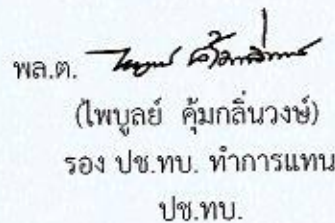 พล.ต.
(ไพบูลย์ คุ้มกลิ่นวงษ์)
รอง ปช.ทบ. ทำการแทน
ปช.ทบ.